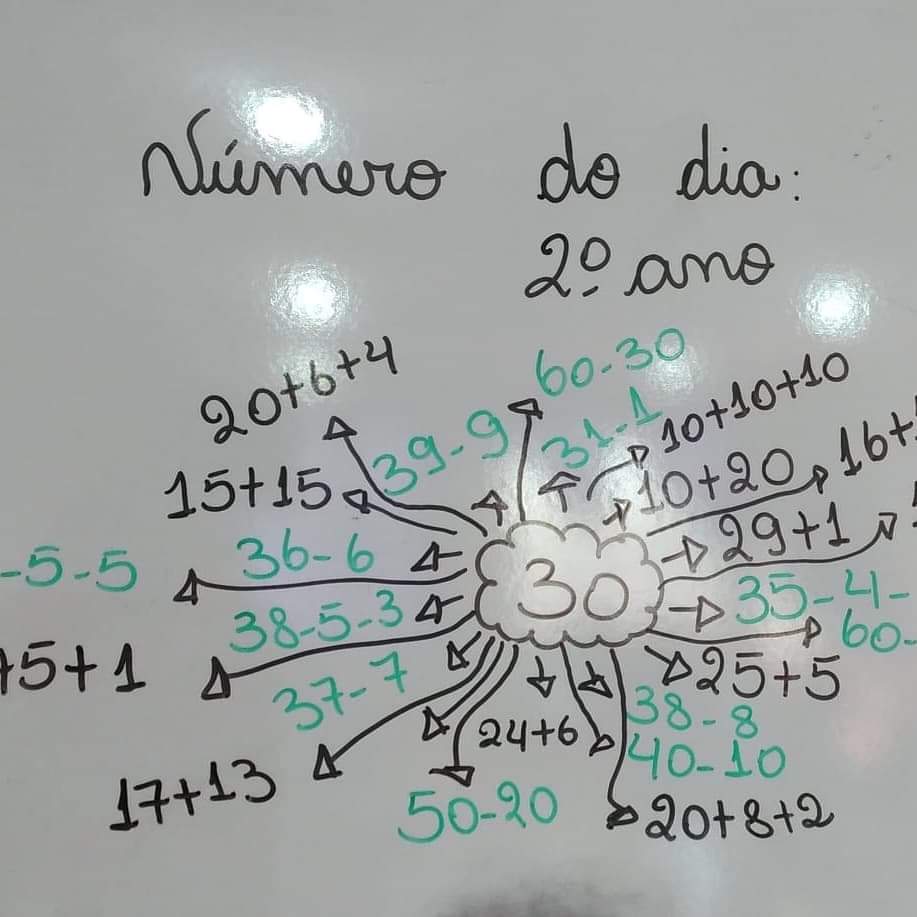 Número do dia:
2º ano
60-30
20+6+4
39-9
31-1
10+10+10
15+15
10+20
16+
36-6
29+1
-5-5
30
35-4-
38-5-3
60-
+5+1
25+5
37-7
38-8
24+6
40-10
17+13
50-20
20+8+2